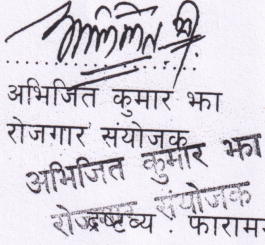 अभिजित कुमार झा
रोजगार संयोजक
अभिजित कुमार झा
संयोजक
द्रष्टव्य : फाराम